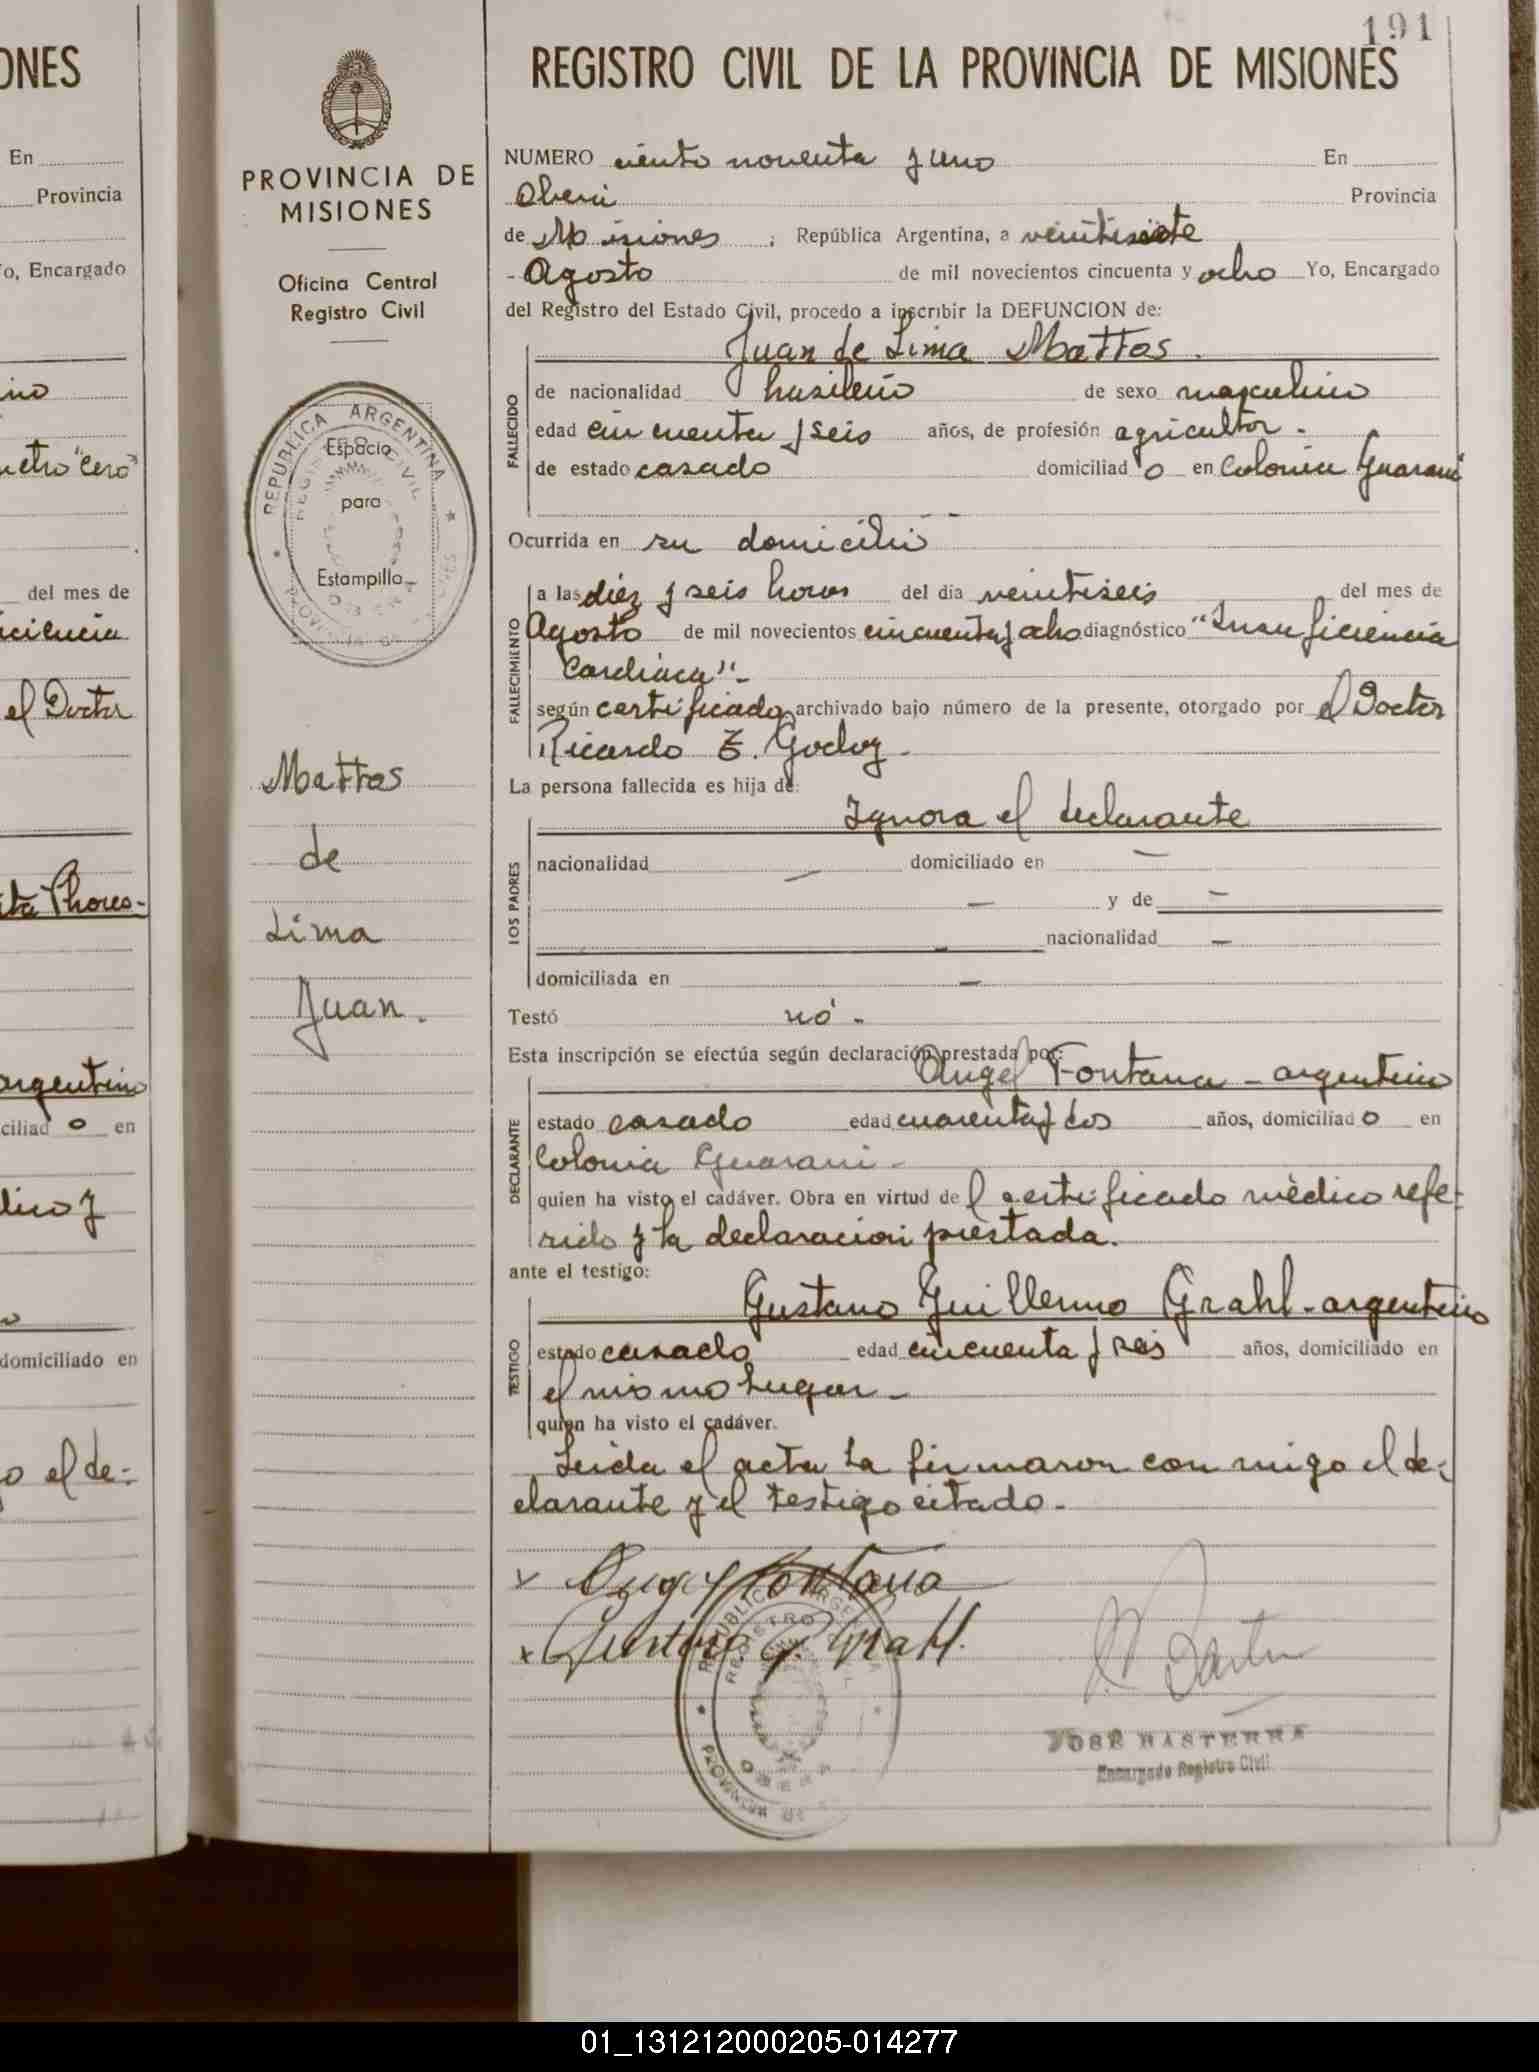 191
REGISTRO CIVIL DE LA PROVINCIA DE MISIONES
PROVINCIA DE
MISIONES
Oficina Central
Registro Civil
REPUBLICA ARGENTINA
Espacio
para
Estampilla
Mattos
de
Lima
Juan.
NUMERO ciento noventa y uno En
Oberá Provincia
de Misiones ; República Argentina, a veintisiete
- Agosto de mil novecientos cincuenta y ocho Yo, Encargado
del Registro del Estado Civil, procedo a inscribir la DEFUNCION de:
FALLECIDO
Juan de Lima Mattos.
de nacionalidad brasileño de sexo masculino
edad cincuenta y seis años, de profesión agricultor.-
de estado casado domiciliad o en Colonia Guaraní
Ocurrida en su domicilio
FALLECIMIENTO
a las diez y seis horas del día veintiseis del mes de
Agosto de mil novecientos cincuenta y ocho diagnóstico "Insuficiencia
Cardíaca".-
según certificado archivado bajo número de la presente, otorgado por el Doctor
Ricardo E. Godoy.
La persona fallecida es hija de:
LOS PADRES
Ignora el declarante
nacionalidad - domiciliado en -
- y de -
- nacionalidad -
domiciliada en -
Testó nó -
Esta inscripción se efectúa según declaración prestada por:
DECLARANTE
Angel Fontana - argentino
estado casado edad cuarenta y dos años, domiciliad o en
Colonia Guarani -
quien ha visto el cadáver. Obra en virtud del certificado médico refe-
rido y la declaración prestada.
ante el testigo:
TESTIGO
Gustavo Guillermo Grahl - argentino
estado casado edad cincuenta y seis años, domiciliado en
el mismo lugar -
quien ha visto el cadáver.
Leída el acta la firmaron con migo el de-
clarante y el testigo citado.-
x Angel Fontana
x Gustavo G. Grahl.
REPUBLICA ARGENTINA
REGISTRO CIVIL
JOSÉ BASTERRA
Encargado Registro Civil
ONES
En
Provincia
Yo, Encargado
del mes de
el Doctor
argentino
ciliad o en
domiciliado en
o el de-
01_131212000205-014277